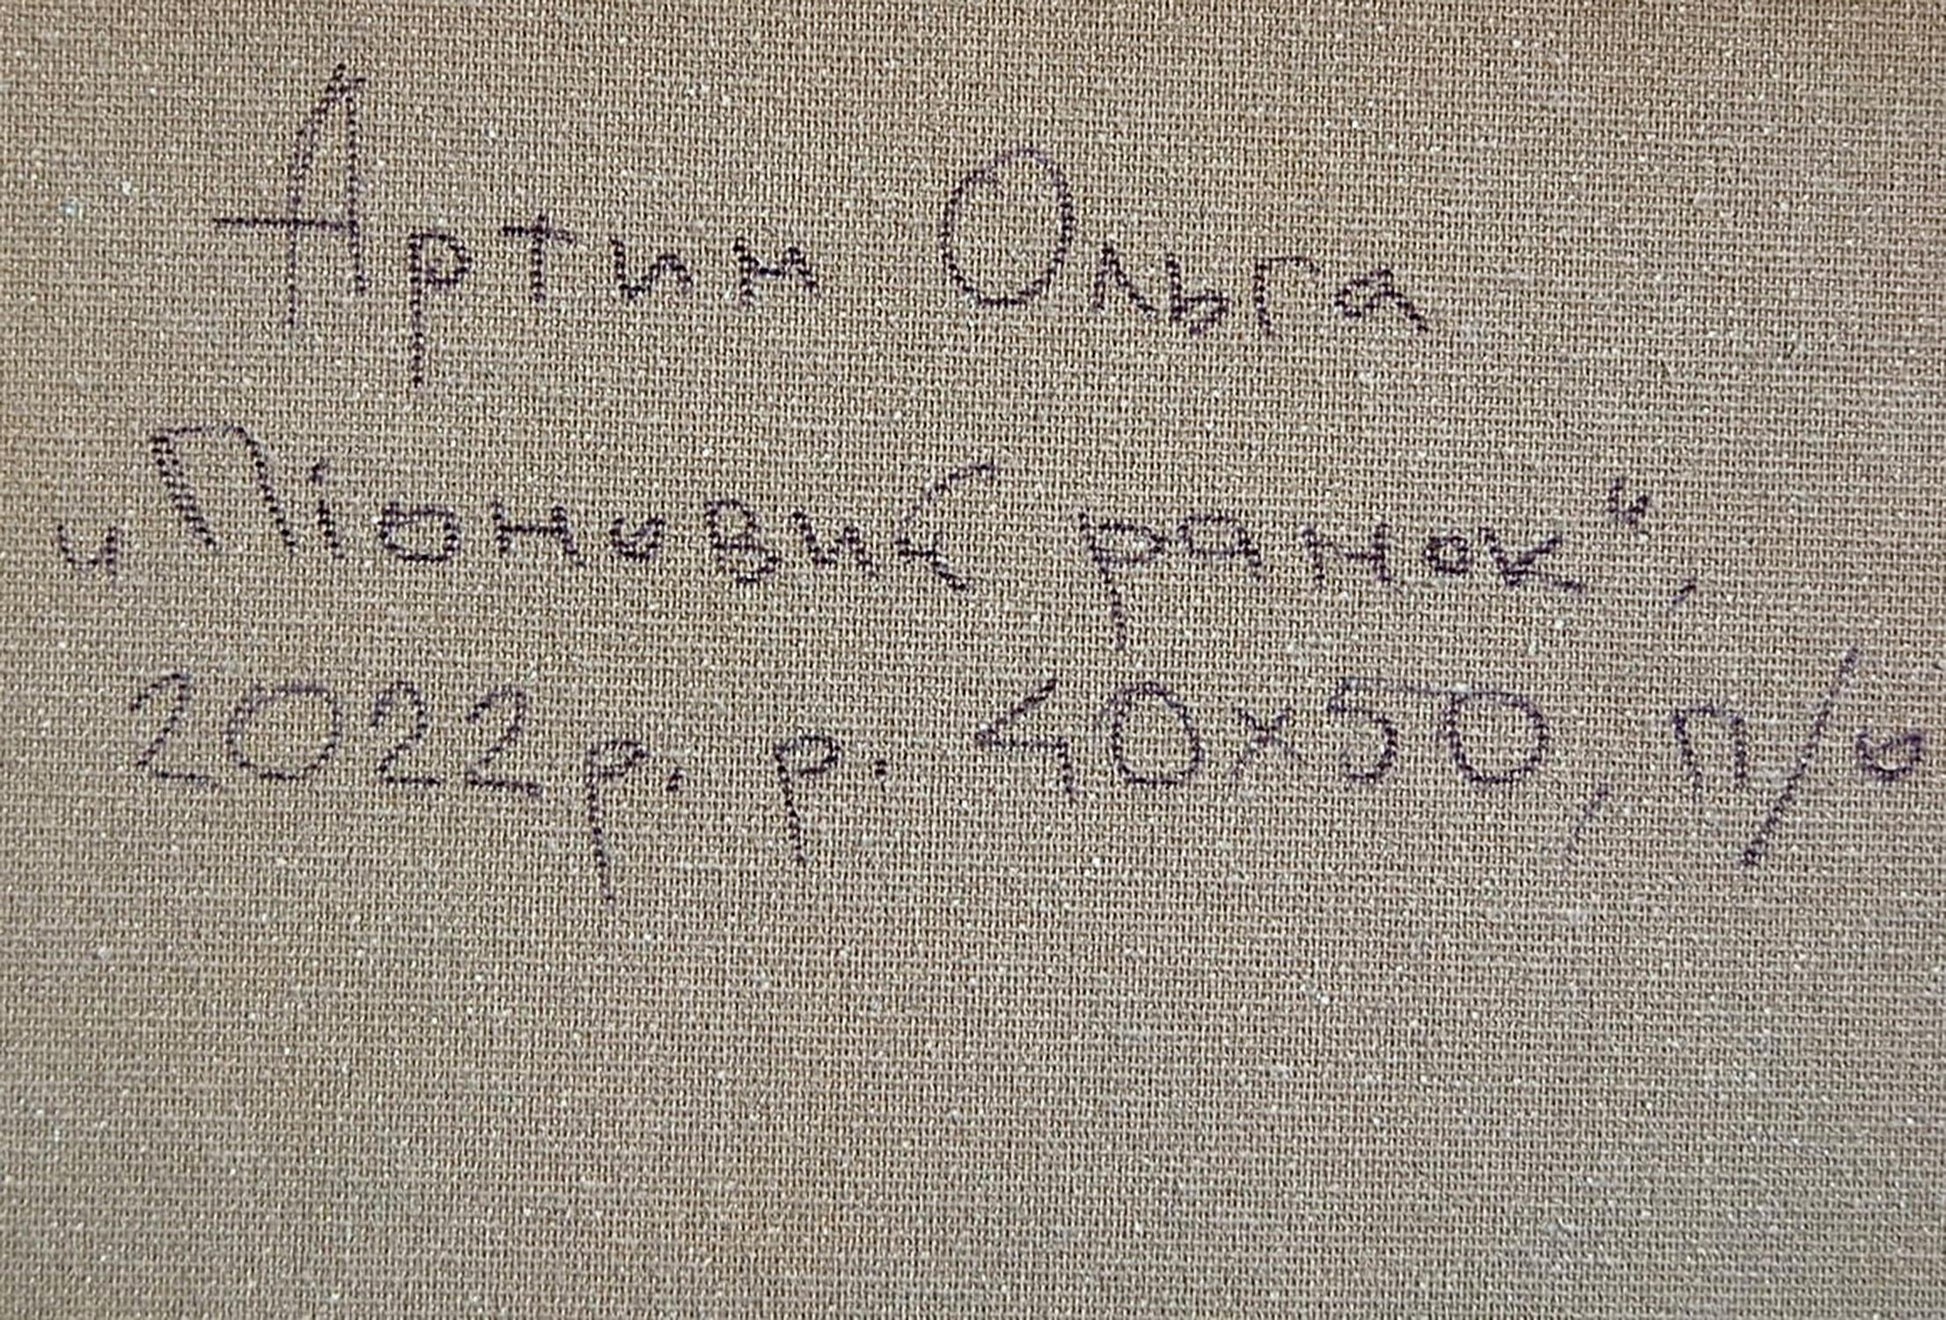 Артим Ольга
„Піоновий ранок“,
2022р. р. 40х50, п/о